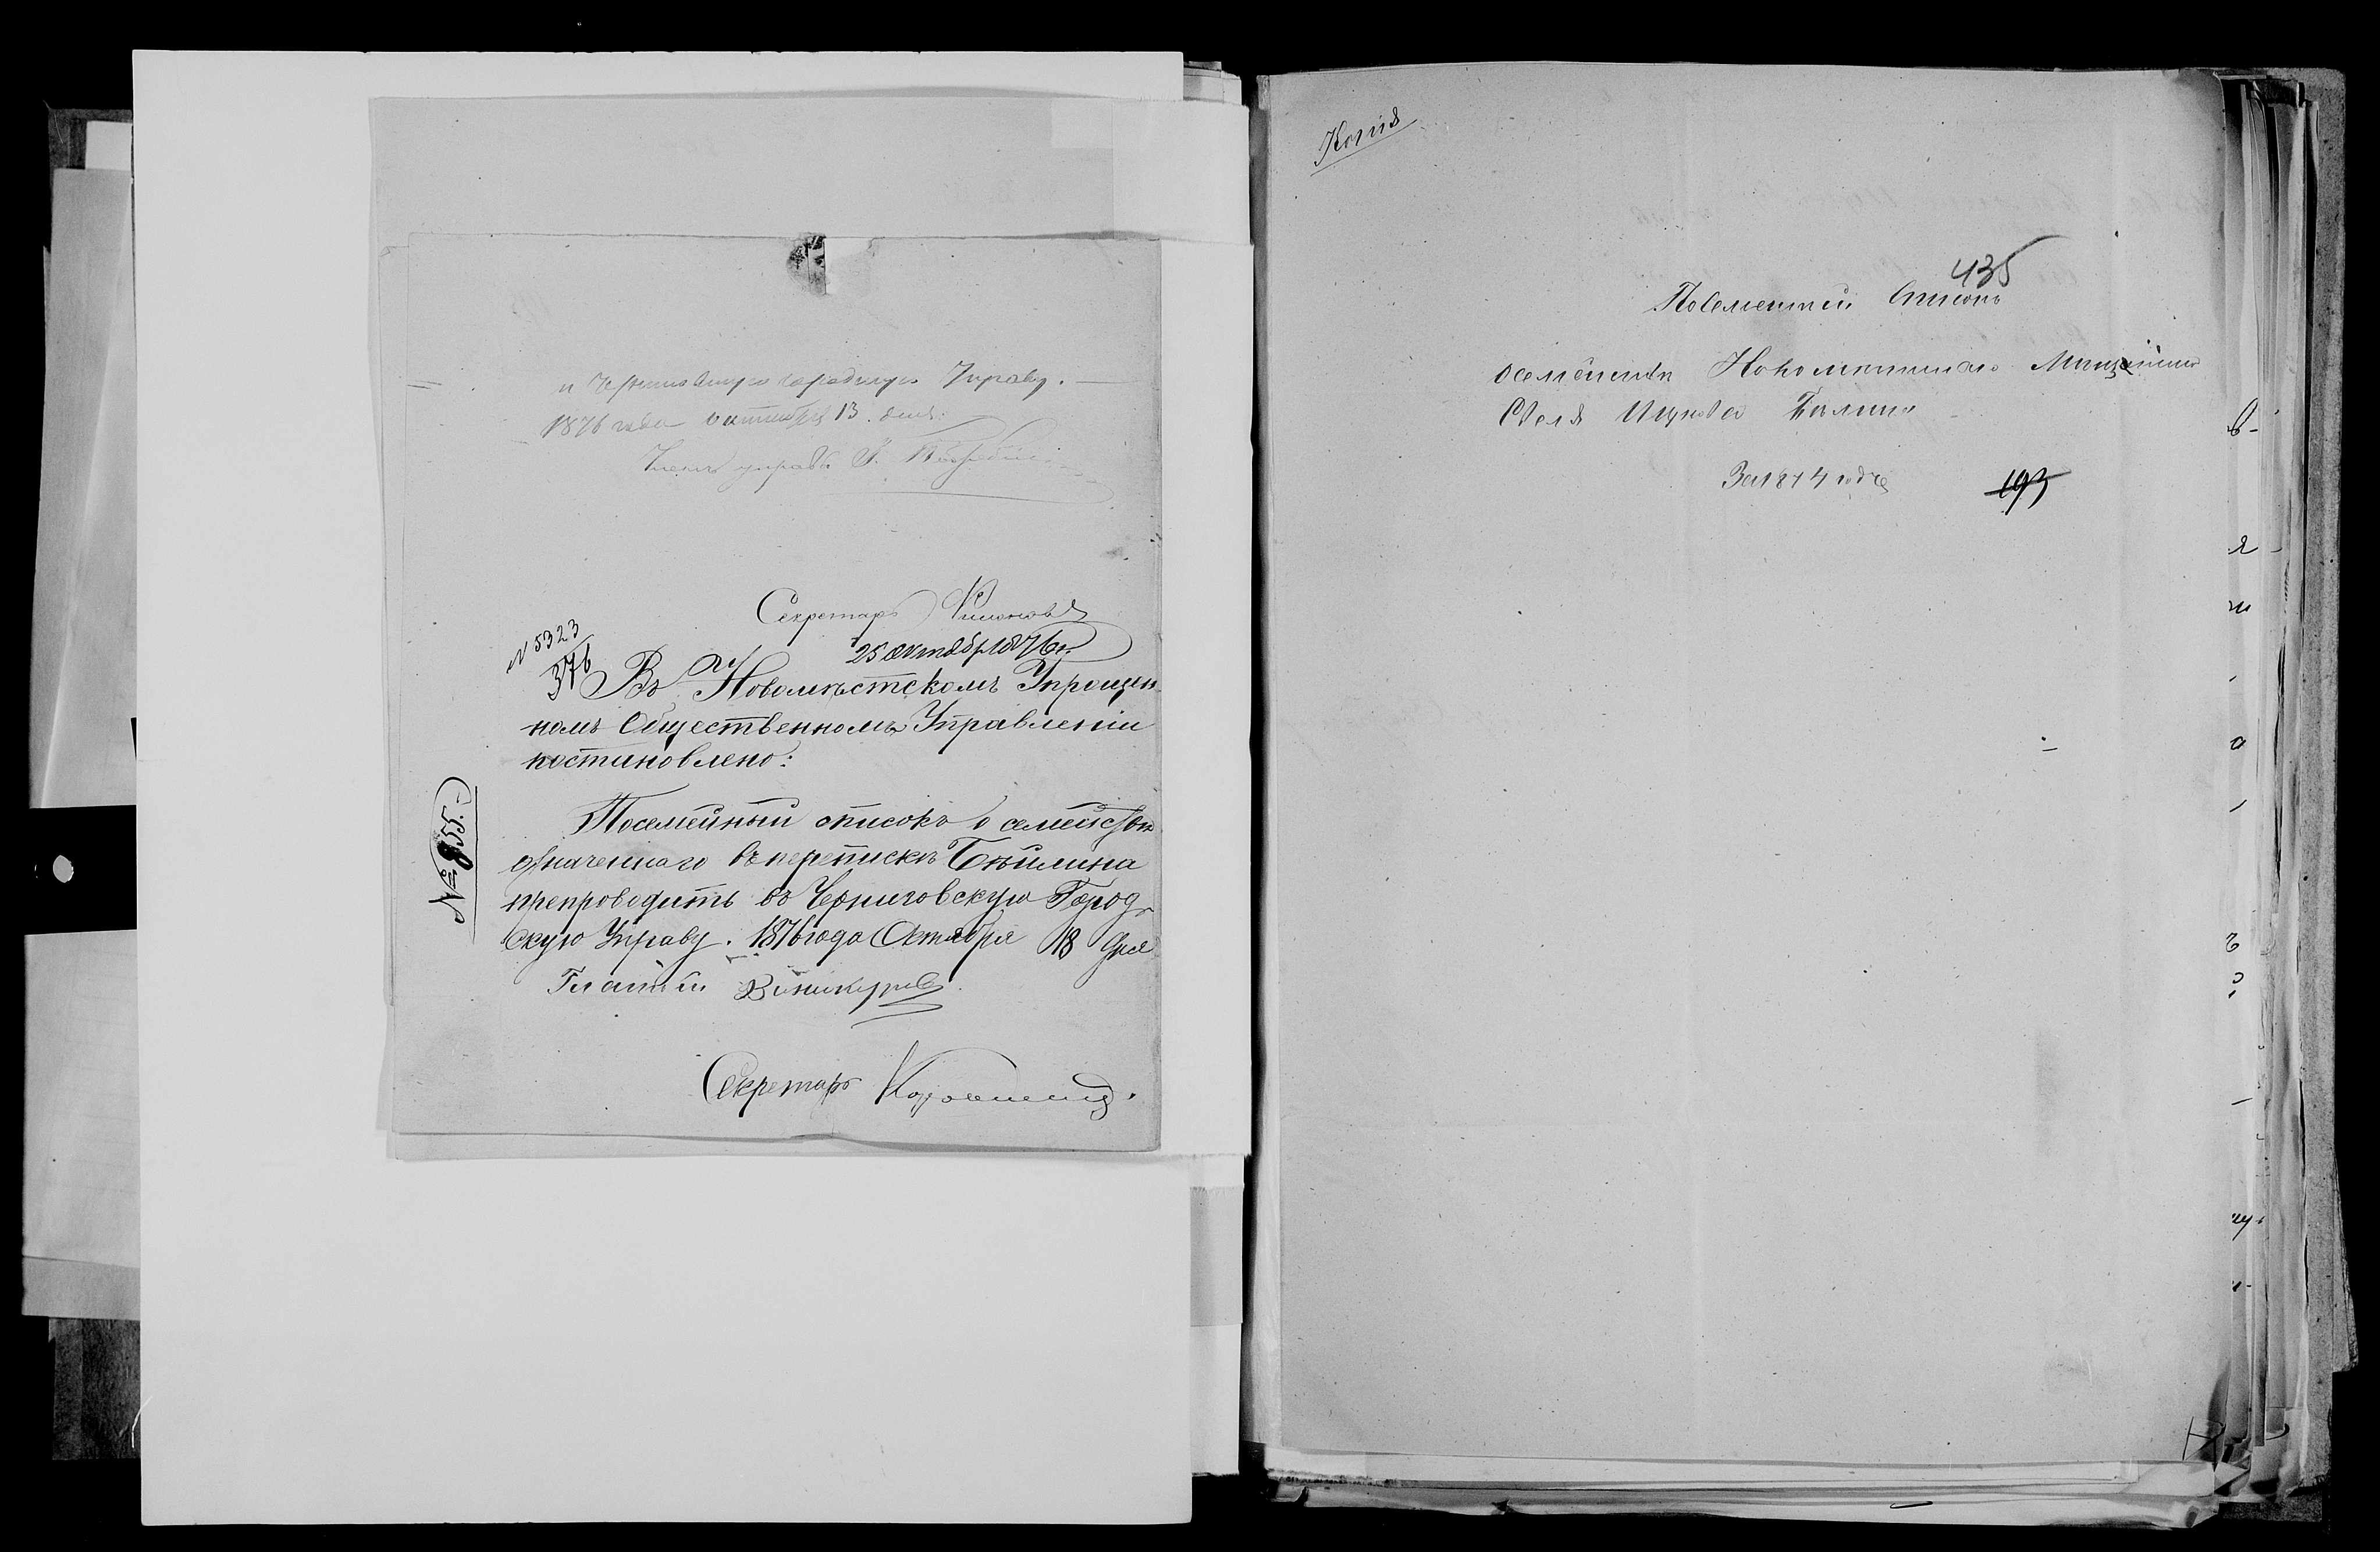 и Черниговскую городскую Управу.
1876 года октября 13. дня.
Членъ управы
Секретарь
25 октябр 1876 г.
N 5323
376
Въ Новомѣстскомъ Упрощен
номъ Общественномъ Управленіи
постановлено:
Посемейный списокъ о семействѣ
означеннаго въ перепискѣ Бейлина
препроводить въ Черниговскую Город
скую Управу. 1876 года Октября 18 дня
Гласный Винокуровъ
Секретарь
№ 855.
Копія
435
Посемейный Списокъ
о семействѣ Новомѣстскаго Мѣщанина
За 1874 годъ
193